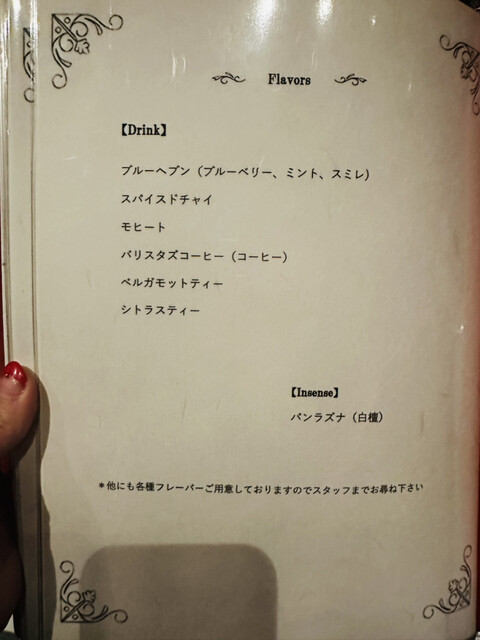 Flavors
【Drink】
ブルーヘブン（ブルーベリー、ミント、スミレ）
スパイスドチャイ
モヒート
バリスタズコーヒー（コーヒー）
ベルガモットティー
シトラスティー
【Insense】
パンラズナ（白檀）
＊他にも各種フレーバーご用意しておりますのでスタッフまでお尋ね下さい